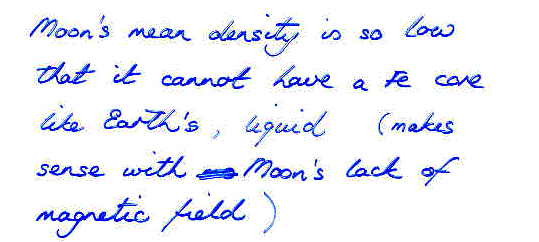 Moon's mean density is so low
that it cannot have a Fe core
like Earth's, liquid (makes
sense with Moon's lack of
magnetic field)